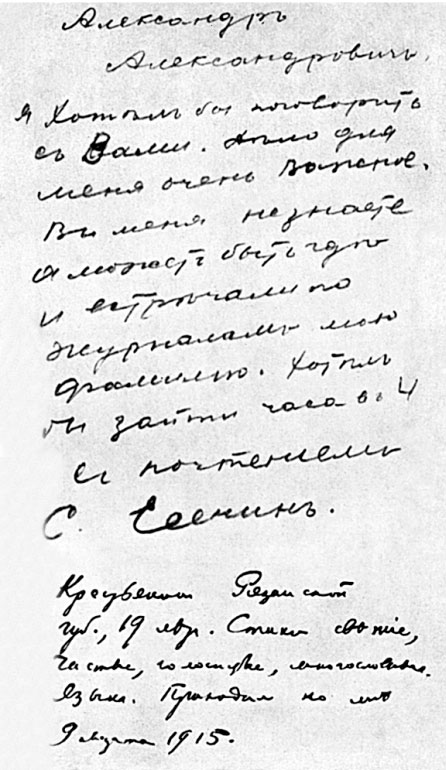 Александръ
Александровичъ,
я хотѣлъ бы поговорить
съ Вами. Дѣло для
меня очень важное.
Вы меня незнаете
а можетъ быть гдѣ
и встрѣчали по
журналамъ мою
фамилию. Хотѣлъ
бы зайти часа въ 4
съ почтениемъ
С. Есенинъ.
Крестьянин Рязанской
губ., 19 лет. Стихи свежие,
чистые, голосистые, многословные.
Язык. Приходил ко мне
9 марта 1915.